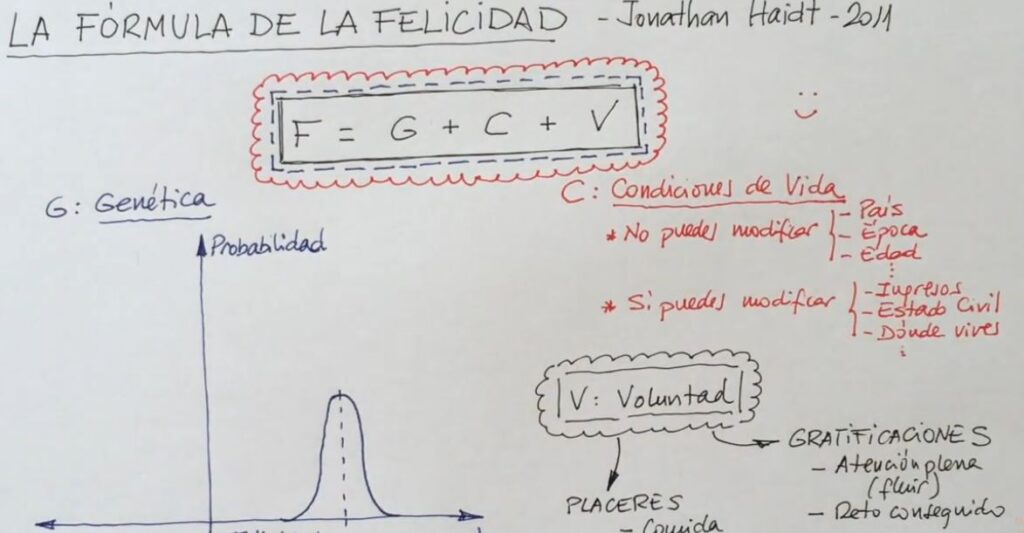 LA FÓRMULA DE LA FELICIDAD - Jonathan Haidt - 2011
F = G + C + V
G: Genética
Probabilidad
C: Condiciones de Vida
* No puedes modificar
- País
- Época
- Edad
* Sí puedes modificar
- Ingresos
- Estado Civil
- Dónde vives
V: Voluntad
PLACERES
- Comida
GRATIFICACIONES
- Atención plena
(fluir)
- Reto conseguido